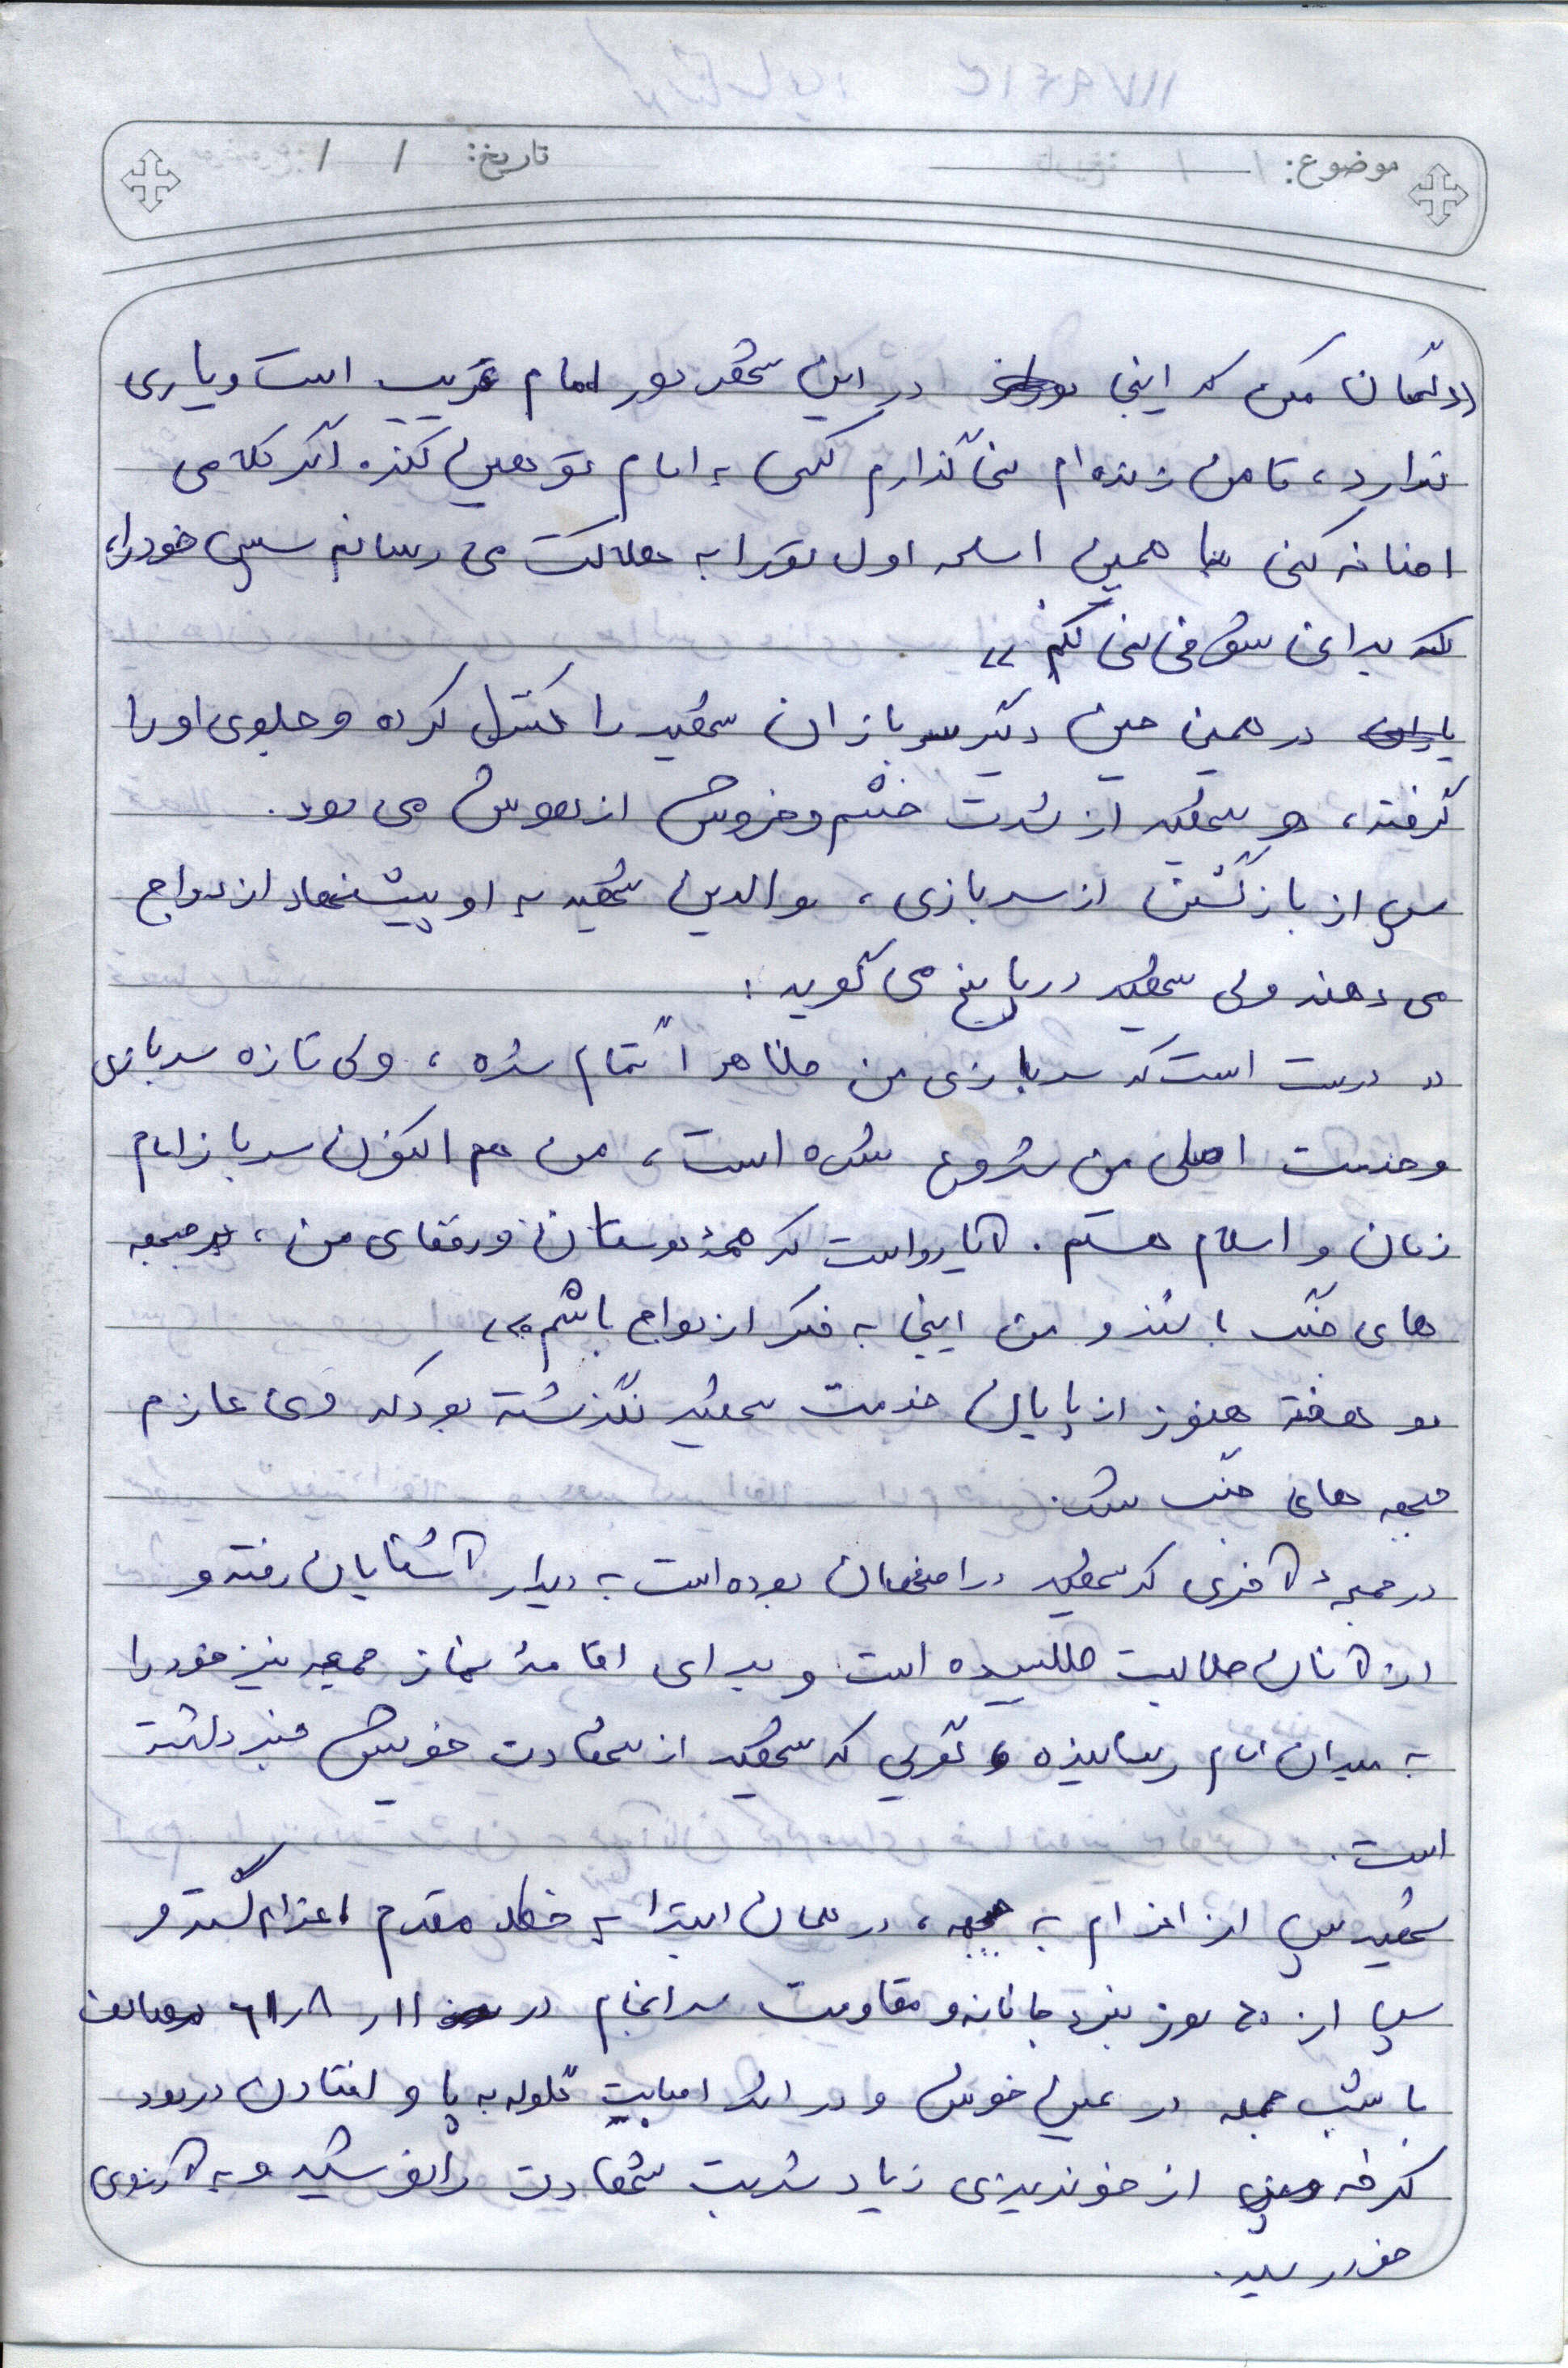 موضوع: تاریخ: / /
«گمان مکن که اینجا در این شهر دور امام غریب است و یاری
ندارد، تا من زنده‌ام نمی‌گذارم کسی به امام توهین کند. اگر کلامی
اضافه کنی با همین اسلحه اول تو را به هلاکت می رسانم سپس خود را،
که براین شوخی نمی کنم»
در همین حین دیگر سربازان شهید را کنترل کرده و جلوی او را
گرفتند، شهید از شدت خشم و خروش از هوش می رود.
پس از بازگشتن از سربازی، والدین شهید به او پیشنهاد ازدواج
می دهند ولی شهید در پاسخ می گوید:
«درست است که سربازی من ظاهراً تمام شده، ولی تازه سربازی
و خدمت اصلی من شروع شده است، من هم اکنون سرباز امام
زمان و اسلام هستم. آیا رواست که همۀ دوستان و رفقای من، در جبهه
های جنگ باشند و من اینجا به فکر ازدواج باشم»
دو هفته هنوز از پایان خدمت شهید نگذشته بود که وی عازم
جبهه های جنگ شد.
در جمعۀ آخری که شهید در اصفهان بوده است به دیدار آشنایان رفته و
از آنان حلالیت طلبیده است و برای اقامۀ نماز جمعه نیز خود را
به میدان امام رسانیده گویی که شهید از شهادت خویش خبر داشته
است.
شهید پس از اعزام به جبهه، در همان ابتدا به خط مقدم اعزام گشته و
پس از روز نبرد جانانه و مقاومت سرانجام در ۶۱/۸/۱۱ مصادف
با شب جمعه در عین خوش و در اثر اصابت گلوله به پا و افتادن در رود
کرخه و پس از خونریزی زیاد شربت شهادت را نوشید و به آرزوی
خود رسید.